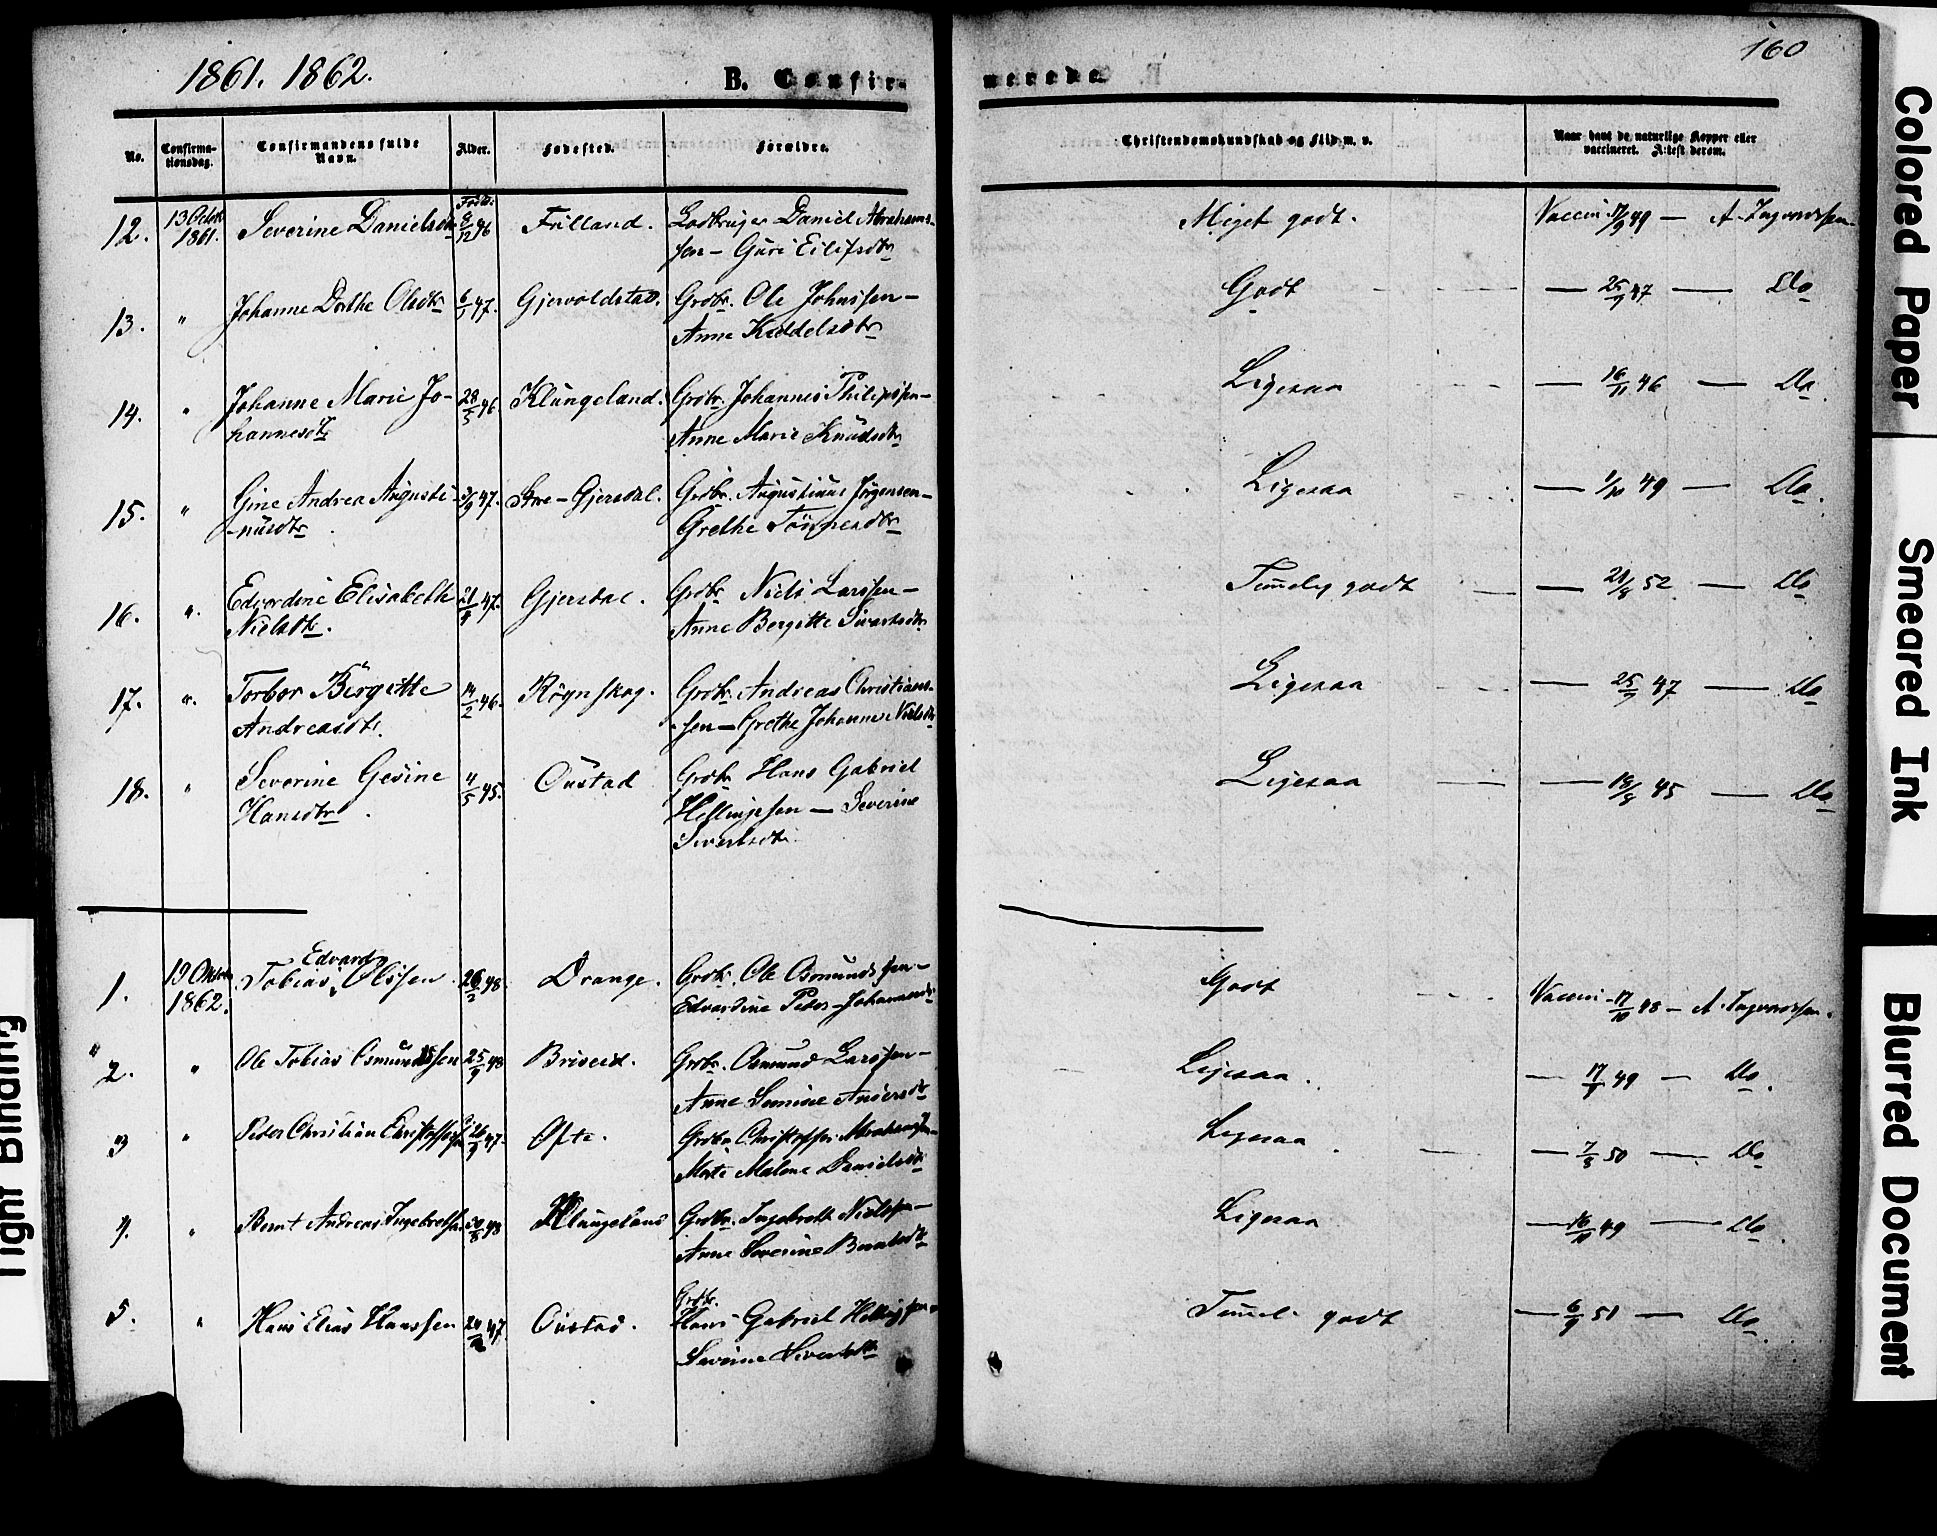 1861. 1862.
B. Confir-
merede.
160
No.
Confirma-
tionsdag.
Confirmandens fulde
Navn.
Alder.
Fødested.
Forældre.
Christendomskundskab og Flid m. v.
Naar havt de naturlige Kopper eller
vaccineret. Attest derom.
12. 13 Octobr 1861. Severine Danielsdtr Født: 8/12 46 Fuland. Daniel Abrahams-
sen – Guri Eilifsdtr
Meget godt. Vaccin. 17/9 49 – A. Ingvardssen
13. " Johanne Dorthe Olsdtr 6/1 47. Gjervoldstad. Grdbr. Ole Johnssen –
Anne Keddelsdtr
Godt – 25/9 47 – Do
14. " Johanne Marie Jo-
hannesdtr 28/5 46 Klungeland. Grdbr. Johannes Philipssen –
Anne Marie Knudsdtr
Ligesaa – 16/11 46 – Do.
15. " Gine Andrea Augusti-
nusdtr 3/9 47. – Gjersdal. Grdbr. Augustinus Jørgensen –
Grethe Tønnesdtr
Ligesaa – 1/10 49 – Do.
16. ". Edvardine Elisabeth
Nielsdtr. 21/9 47. Gjersdal. Grdbr. Niels Larssen –
Anne Bergitte Sivertsdtr
Temmelig godt – 21/8 52 – Do
17. ". Torbor Bergitte
Andreasdtr. 14/2 46. Røgnskog. Grdbr. Andreas Christians-
sen – Grethe Johanne Nielsdtr
Ligesaa – 25/9 47 – Do
18. " Severine Gesine
Hansdtr. 4/5 45. Oustad Grdbr. Hans Gabriel
Hellingssen – Severine
Sivertsdtr.
Ligesaa – 18/8 45 – Do
1. 19 Oktobr 1862. Tobias Edvard Olssen. 26/2 48. Drange. Grdbr. Ole Osmundssen –
Edvardine Peder-Johannesdtr
Godt Vaccin. – 17/10 48 – A. Ingvardssen.
2. " Ole Tobias Osmundssen 25/9 48 Briseid. Grdbr. Osmund Larssen –
Anne Severine Andersdtr
Ligesaa. – 17/9 49 – Do.
3 " Peder Christian 26/9 47. Ofte. Grdbr. Christoffer Abrahamsen –
Marte Malene Danielsdtr
Ligesaa. – 7/8 50 – Do
4. " Bernt Andreas Ingebretsen 48 Klungeland Grdbr. Ingebrett Nielssen –
Anne Severine Berntsdtr
Ligesaa – 16/10 49 – Do.
5. " Hans Elias Hanssen 24/2 47. Oustad. Grdbr.
Hans Gabriel Hellingssen –
Severine Sivertsdtr
Temmel. godt – 6/9 51 – Do.
Colored Paper
Smeared Ink
Blurred Document
Tight Binding